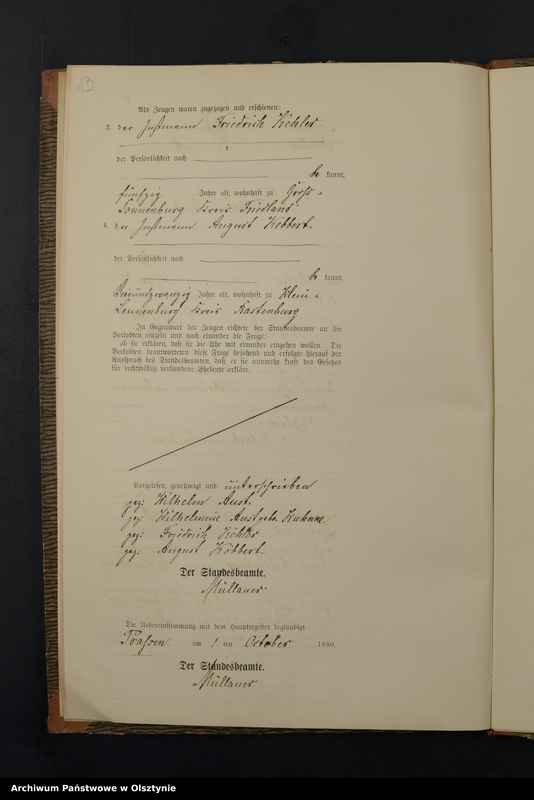 13
Als Zeugen waren zugezogen und erschienen:
3. der Instmann Friedrich Kehler
der Persönlichkeit nach
be kannt,
fünfzig Jahre alt, wohnhaft zu Groß-
Sonnenburg Kreis Friedland
4. der Instmann August Köbbert
der Persönlichkeit nach
be kannt,
Vierundzwanzig Jahre alt, wohnhaft zu Klein-
Kreis Rastenburg
In Gegenwart der Zeugen richtete der Standesbeamte an die
Verlobten einzeln und nach einander die Frage:
ob sie erklären, daß sie die Ehe mit einander eingehen wollen. Die
Verlobten beantworteten diese Frage bejahend und erfolgte hierauf der
Ausspruch des Standesbeamten, daß er sie nunmehr kraft des Gesetzes
für rechtmäßig verbundene Eheleute erkläre.
Vorgelesen, genehmigt und unterschrieben
gez: Wilhelm Aust.
gez: Wilhelmine Aust geb.
gez: Friedrich Kehler
gez: August Köbbert.
Der Standesbeamte.
Müllauer
Die Uebereinstimmung mit dem Hauptregister beglaubigt.
Prassen am 1 ten October 1880.
Der Standesbeamte.
Müllauer
Archiwum Państwowe w Olsztynie